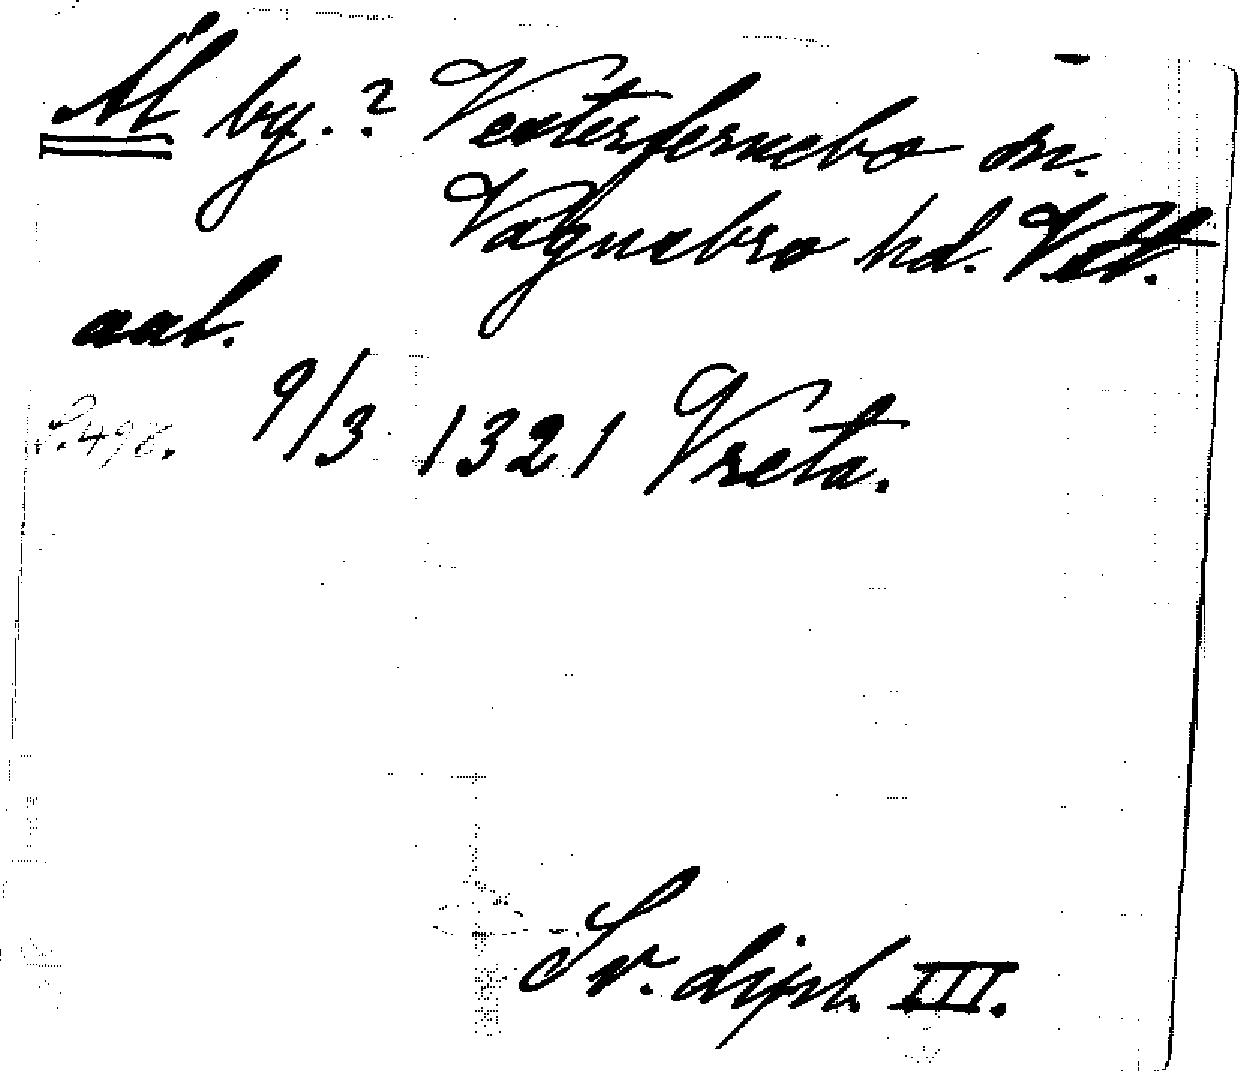 Ål by.? Vesterfernebo sn.
Vagnsbro hd. Vstl.
aal.
S. 498. 9/3 1321 Vreta.
Sv. dipl. III.